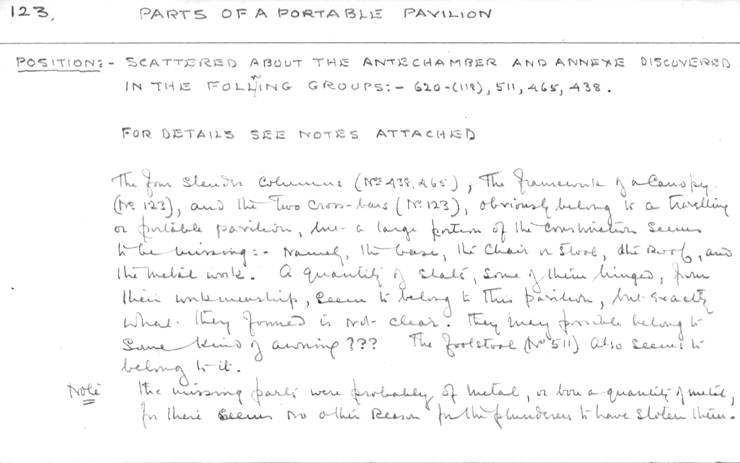 123. PARTS OF A PORTABLE PAVILION
POSITION:- SCATTERED ABOUT THE ANTECHAMBER AND ANNEXE DISCOVERED
IN THE FOLLWING GROUPS:- 620-(118), 511, 465, 438.
FOR DETAILS SEE NOTES ATTACHED
The four slender columns (Nos 438, 465), The framework of a Canopy
(No 123), and the Two Cross-bars (No 123), obviously belong to a travelling
or portable pavilion, but a large portion of the construction seems
to be missing:- Namely, the base, the Chair or Stool, the Roof, and
the metal work. A quantity of slats, some of them hinged, from
their workmanship, seem to belong to this pavilion, but exactly
what they formed is not clear. They may possible belong to
some kind of awning ??? The footstool (No 511) also seems to
belong to it.
Note The missing parts were probably of metal, or bore a quantity of metal,
for there seems no other reason for the plunderers to have stolen them.